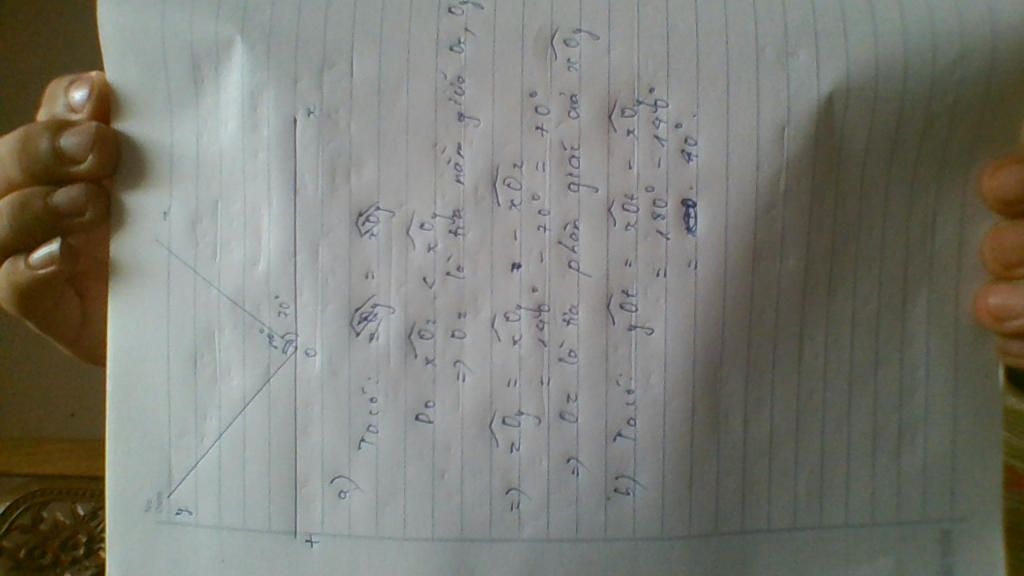 z
y
140°
70°
t
O
x
a) Ta có:
Do xOz < xOy
=> Oz là tia nằm giữa Ox, Oy
=> zOy = xOy - xOz
= 140° - 70° = 70°
=> Oz là tia phân giác của xOy
b) Ta có: yOt = xOt - xOy
= 180° - 140°
= 40°.